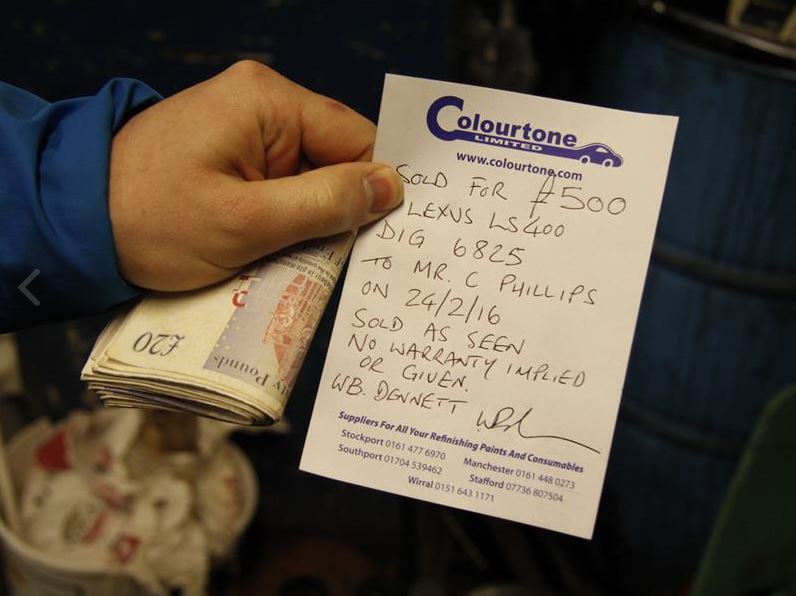 Colourtone
LIMITED
www.colourtone.com
SOLD FOR £500
LEXUS LS400
DIG 6825
TO MR. C PHILLIPS
ON 24/2/16
SOLD AS SEEN
NO WARRANTY IMPLIED
OR GIVEN.
WB. DENNETT
Suppliers For All Your Refinishing Paints And Consumables
Stockport 0161 477 6970 Manchester 0161 448 0273
Southport 01704 539462 Stafford 07736 807504
Wirral 0151 643 1171
£20
Pounds